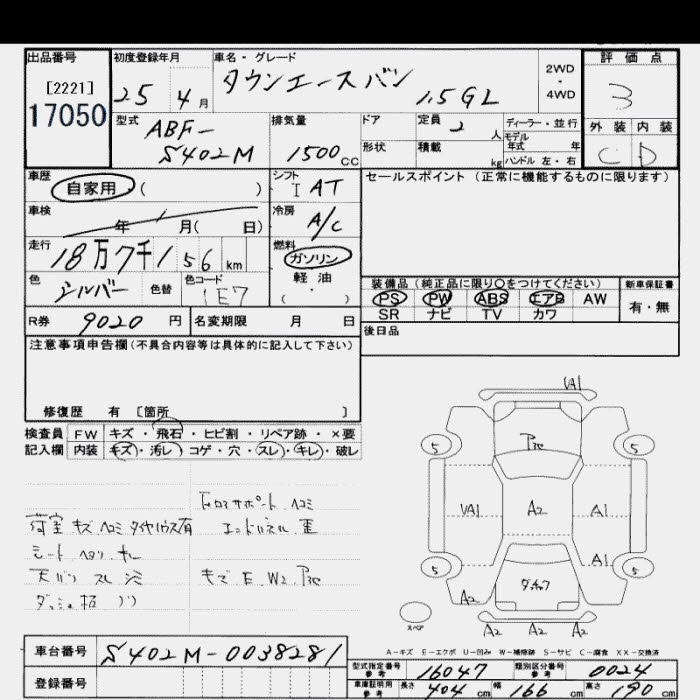 出品番号
[2221]
17050
初度登録年月
25 4月
車名・グレード
タウンエースバン
1.5GL
2WD
・
4WD
評価点
3
外装 内装
C D
型式
ABF-
S402M
排気量
1500cc
ドア
形状
定員 2 人
積載 kg
ディーラー・並行
モデル
年式 年
ハンドル 左・右
車歴
自家用 ( )
シフト
I AT
セールスポイント (正常に機能するものに限ります)
車検
年 月( 日)
冷房
A/C
走行
18万7千156km
燃料
ガソリン
軽油
( ・ )
色
シルバー
色替
色コード
1E7
装備品 (純正品に限り○をつけてください)
PS PW ABS エアB AW
SR ナビ TV カワ
新車保証書
有・無
R券 9020 円
名変期限 月 日
後日品
注意事項申告欄 (不具合内容等は具体的に記入して下さい)
修復歴 有 [箇所 ]
検査員 FW キズ・飛石・ヒビ割・リペア跡・×要
記入欄 内装 キズ・汚レ・コゲ・穴・スレ・キレ・破レ
荷室 キズ ヘコミ タイヤハウス有
シート ヘタリ
天バリ スレ
コアサポート ヘコミ
エンドパネル 歪
キズ E W2
VA1
5 5
VA1 A2 A1
A1
5 5
A2 A2
A2 A2 A2
スペア
A-キズ E-エクボ U-凹み W-補修跡 S-サビ C-腐食 XX-交換済
車台番号 S402M-0038281
登録番号
型式指定番号
参考
16047
類別区分番号
参考
0024
車庫証明用
参考
長さ 404 cm 幅 166 cm 高さ 190 cm